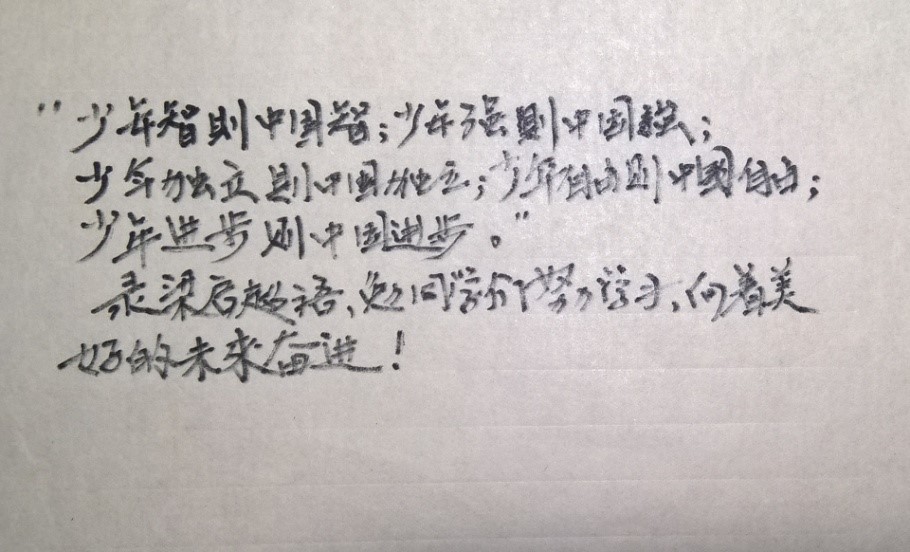 “少年智则中国智;少年强则中国强;
少年独立则中国独立;少年自由则中国自由;
少年进步则中国进步。”
录梁启超语,勉同学们努力学习,向着美
好的未来奋进!